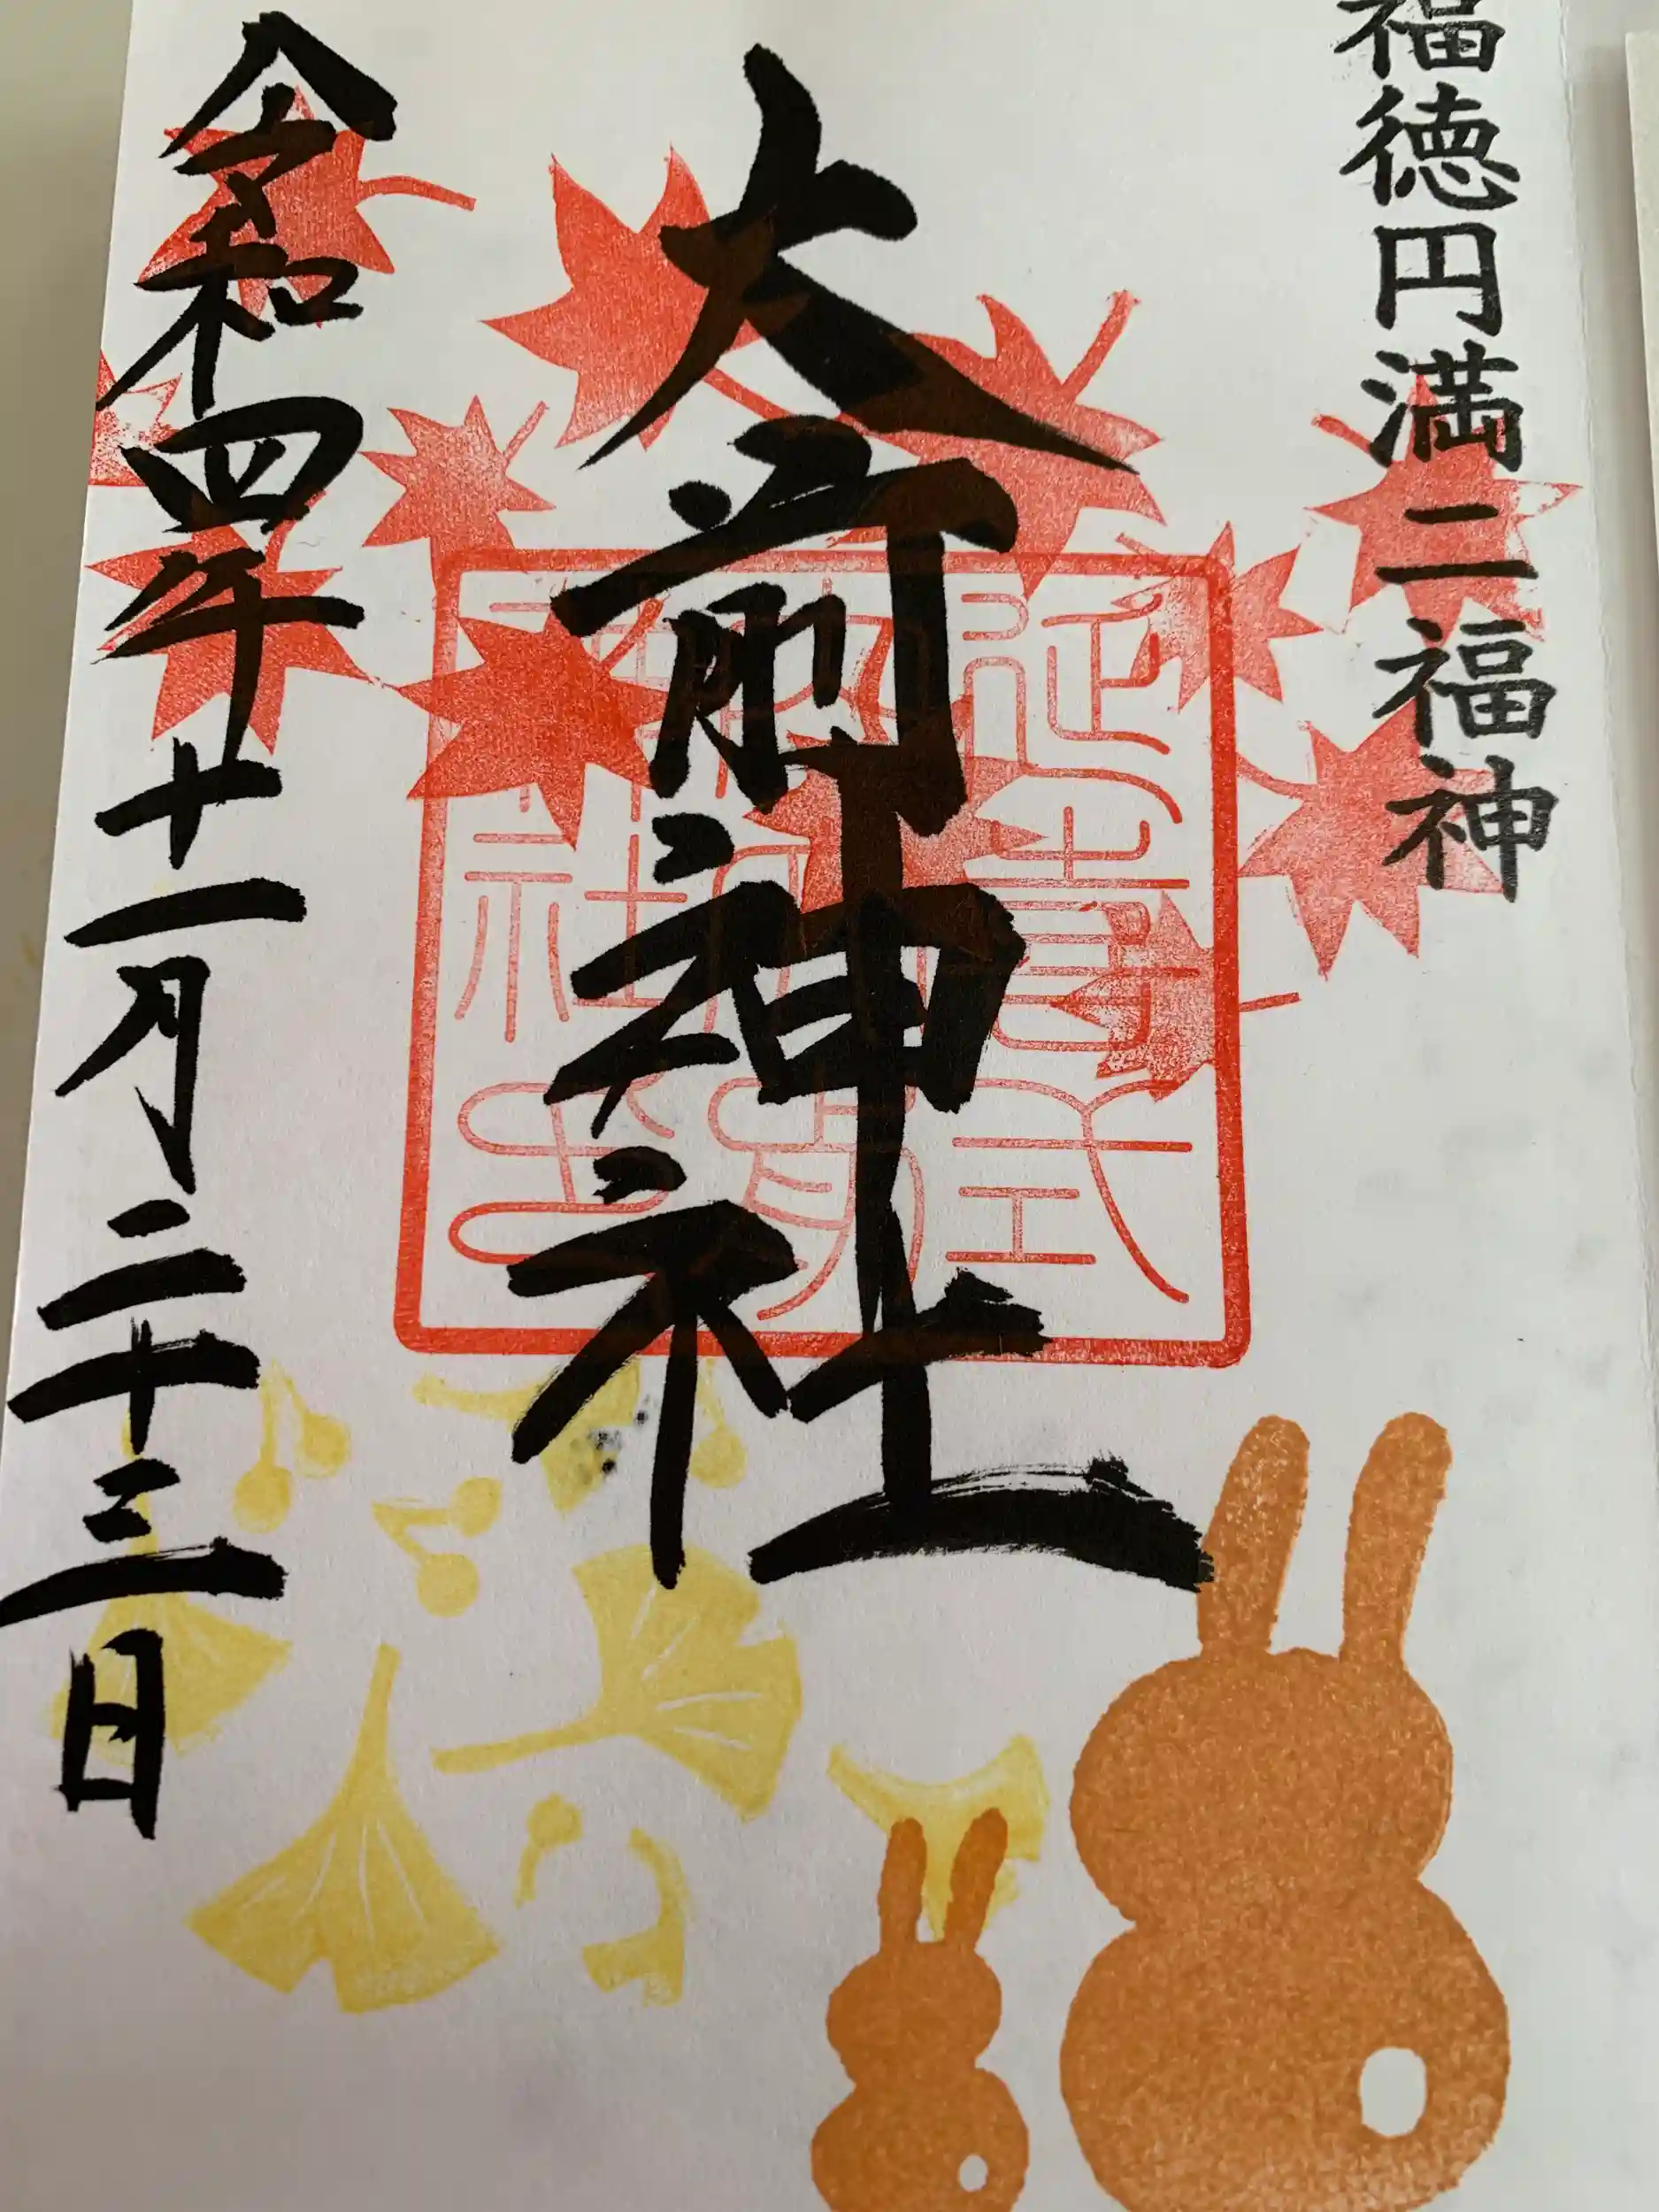 福徳円満二福神
大前神社
令和四年十一月二十三日